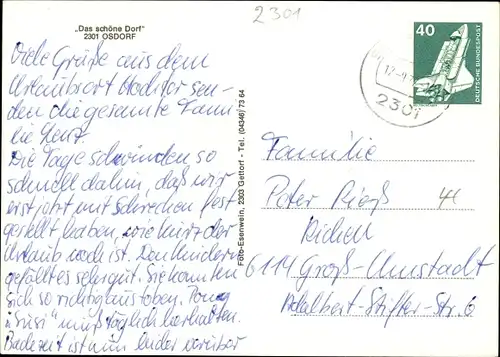 2301
„Das schöne Dorf"
2301 OSDORF
Viele Grüße aus dem
Urlaubsort Osdorf sen-
den die gesamte Fami-
lie
Die Tage schwinden so
schnell dahin, daß wir
erst jetzt mit Schrecken fest
gestellt haben, wie kurz der
Urlaub noch ist. Den Kindern
gefällt es sehr gut. Sie konnten
sich so richtig austoben. Pony
„Susi" muß täglich herhalten.
Badezeit ist nun leider vorüber
Foto-Esenwein, 2303 Gettorf - Tel. (04346) 73 64
40
DEUTSCHE BUNDESPOST
2301
Familie
Peter
6114 Groß-Umstadt
Adalbert-Stifter-Str. 6